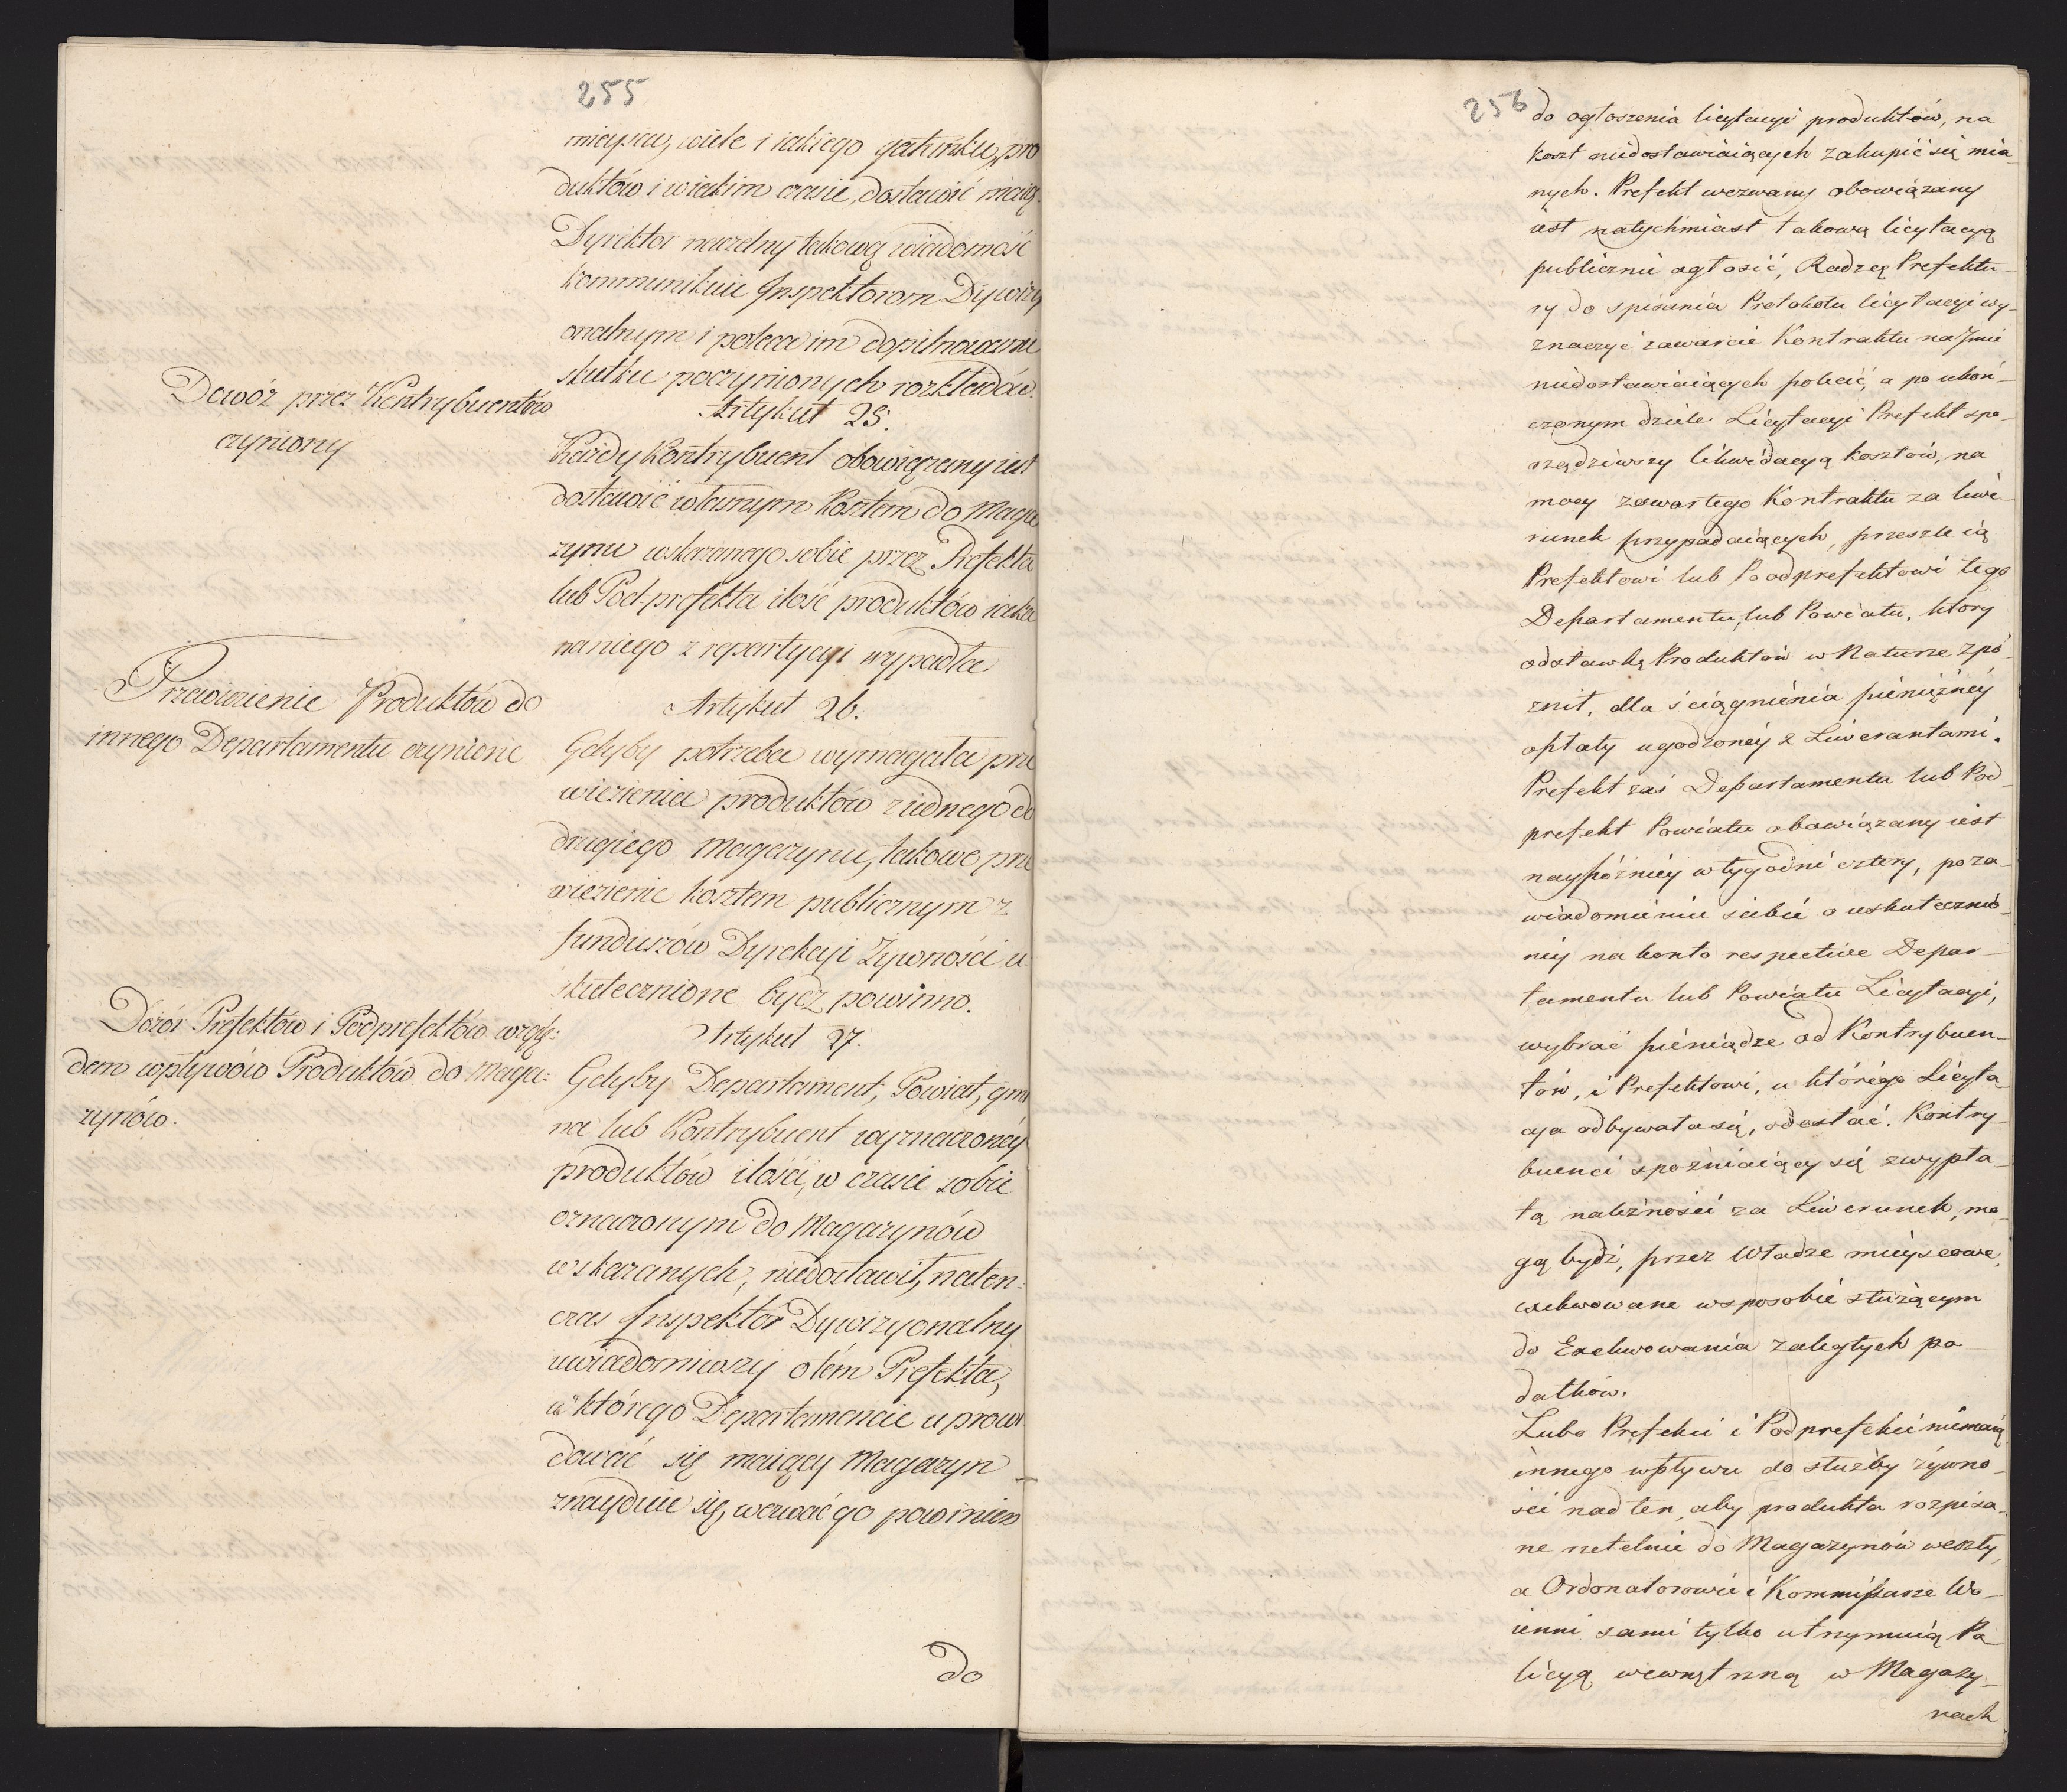 255
mieysca, wiele i iakiego gatunku, pro
duktów i wiakim czasie, dostawić maią.
Dyrektor naczelny takową wiadomość
kommunikuie Inspektorom Dywizy
onalnym i poleca im dopilnowanie
skutku poczynionych rozkładów.
Dowóz przez Kontrybuentów
czyniony
Artykuł 25.
Każdy Kontrybuent obowiązany iest
dostawić własnym Kosztem do Maga
zynu wskazanego sobie przez Prefekta
lub Pod-prefekta ilość produktów iaka
naniego z repartycyi wypadła
Przewiezienie Produktów do
innego Departamentu czynione
Artykuł 26.
Gdyby potrzeba wymagała prze
wiezienia produktów ziednego do
drugiego Magazynu, takowe prze
wiezienie kosztem publicznym z
funduszów Dyrekcyi Żywności u
skutecznione bydz powinno.
Dozór Prefektów i Podprefektów wzglę:
dem wpływów Produktów do Maga:
zynów.
Artykuł 27.
Gdyby Departament, Powiat, gmi
na lub Kontrybuent wyznaczonéy
produktów ilości, w czasie sobie
oznaczonym do Magazynów
wskazanych, niedostawił, naten:
czas Inspektor Dywizyonalny
uwiadomiwszy otém Prefekta,
w którego Departamencie uprowi
dować się maiący Magazyn
znayduie się, wezwać go powinien
do
256
do ogłoszenia licytacyi produktów, na
koszt niedostawiaiących zakupić się mia
nych. Prefekt wezwany obowiązany
iest natychmiast takową licytacyą
publicznie ogłosić, Radzcę Prefektu-
ry do spisania Protokołu licytacyi wy-
znaczyć zawarcie Kontraktu na Imie
niedostawiaiących polecić, a po ukoń-
czonym dziele Licytacyi Prefekt spo-
rządziwszy likwidacyą kosztów, na
mocy zawartego Kontraktu za liwe-
runek przypadaiących, przeszle ią
Prefektowi lub Poodprefektowi tego
Departamentu, lub Powiatu, który
odstawkę Produktów w Naturze zpó-
znił, dla ściągnienia pieniężnéy
opłaty ugodzonéy z Liwerantami.
Prefekt zaś Departamentu lub Pod-
prefekt Powiatu obowiązany iest
naypóźniéy w tygodni cztery, po za-
wiadomieniu siebie o uskutecznio-
néy na konto respective Depar-
tamentu lub Powiatu Licytacyi,
wybrać pieniądze od Kontrybuen-
tów, i Prefektowi, u którégo Licyta-
cya odbywała się, odesłać. Kontry-
buenci spoźniaiący się zwypła-
tą należności za Liwerunek, mo-
gą bydź, przez Władze mieyscowe,
exekwowane w sposobie służącym
do Exekwowania zaległych po-
datków.
Lubo Prefekci i Podprefekci niemaią
innego wpływu do służby żywno-
ści nad ten, aby produkta rozpisa-
ne rzetelnie do Magazynów weszły,
a Ordonatorowie i Kommissarze Wo-
ienni sami tylko utrzymuią Po-
licyą wewnętrzną w Magazy-
nach